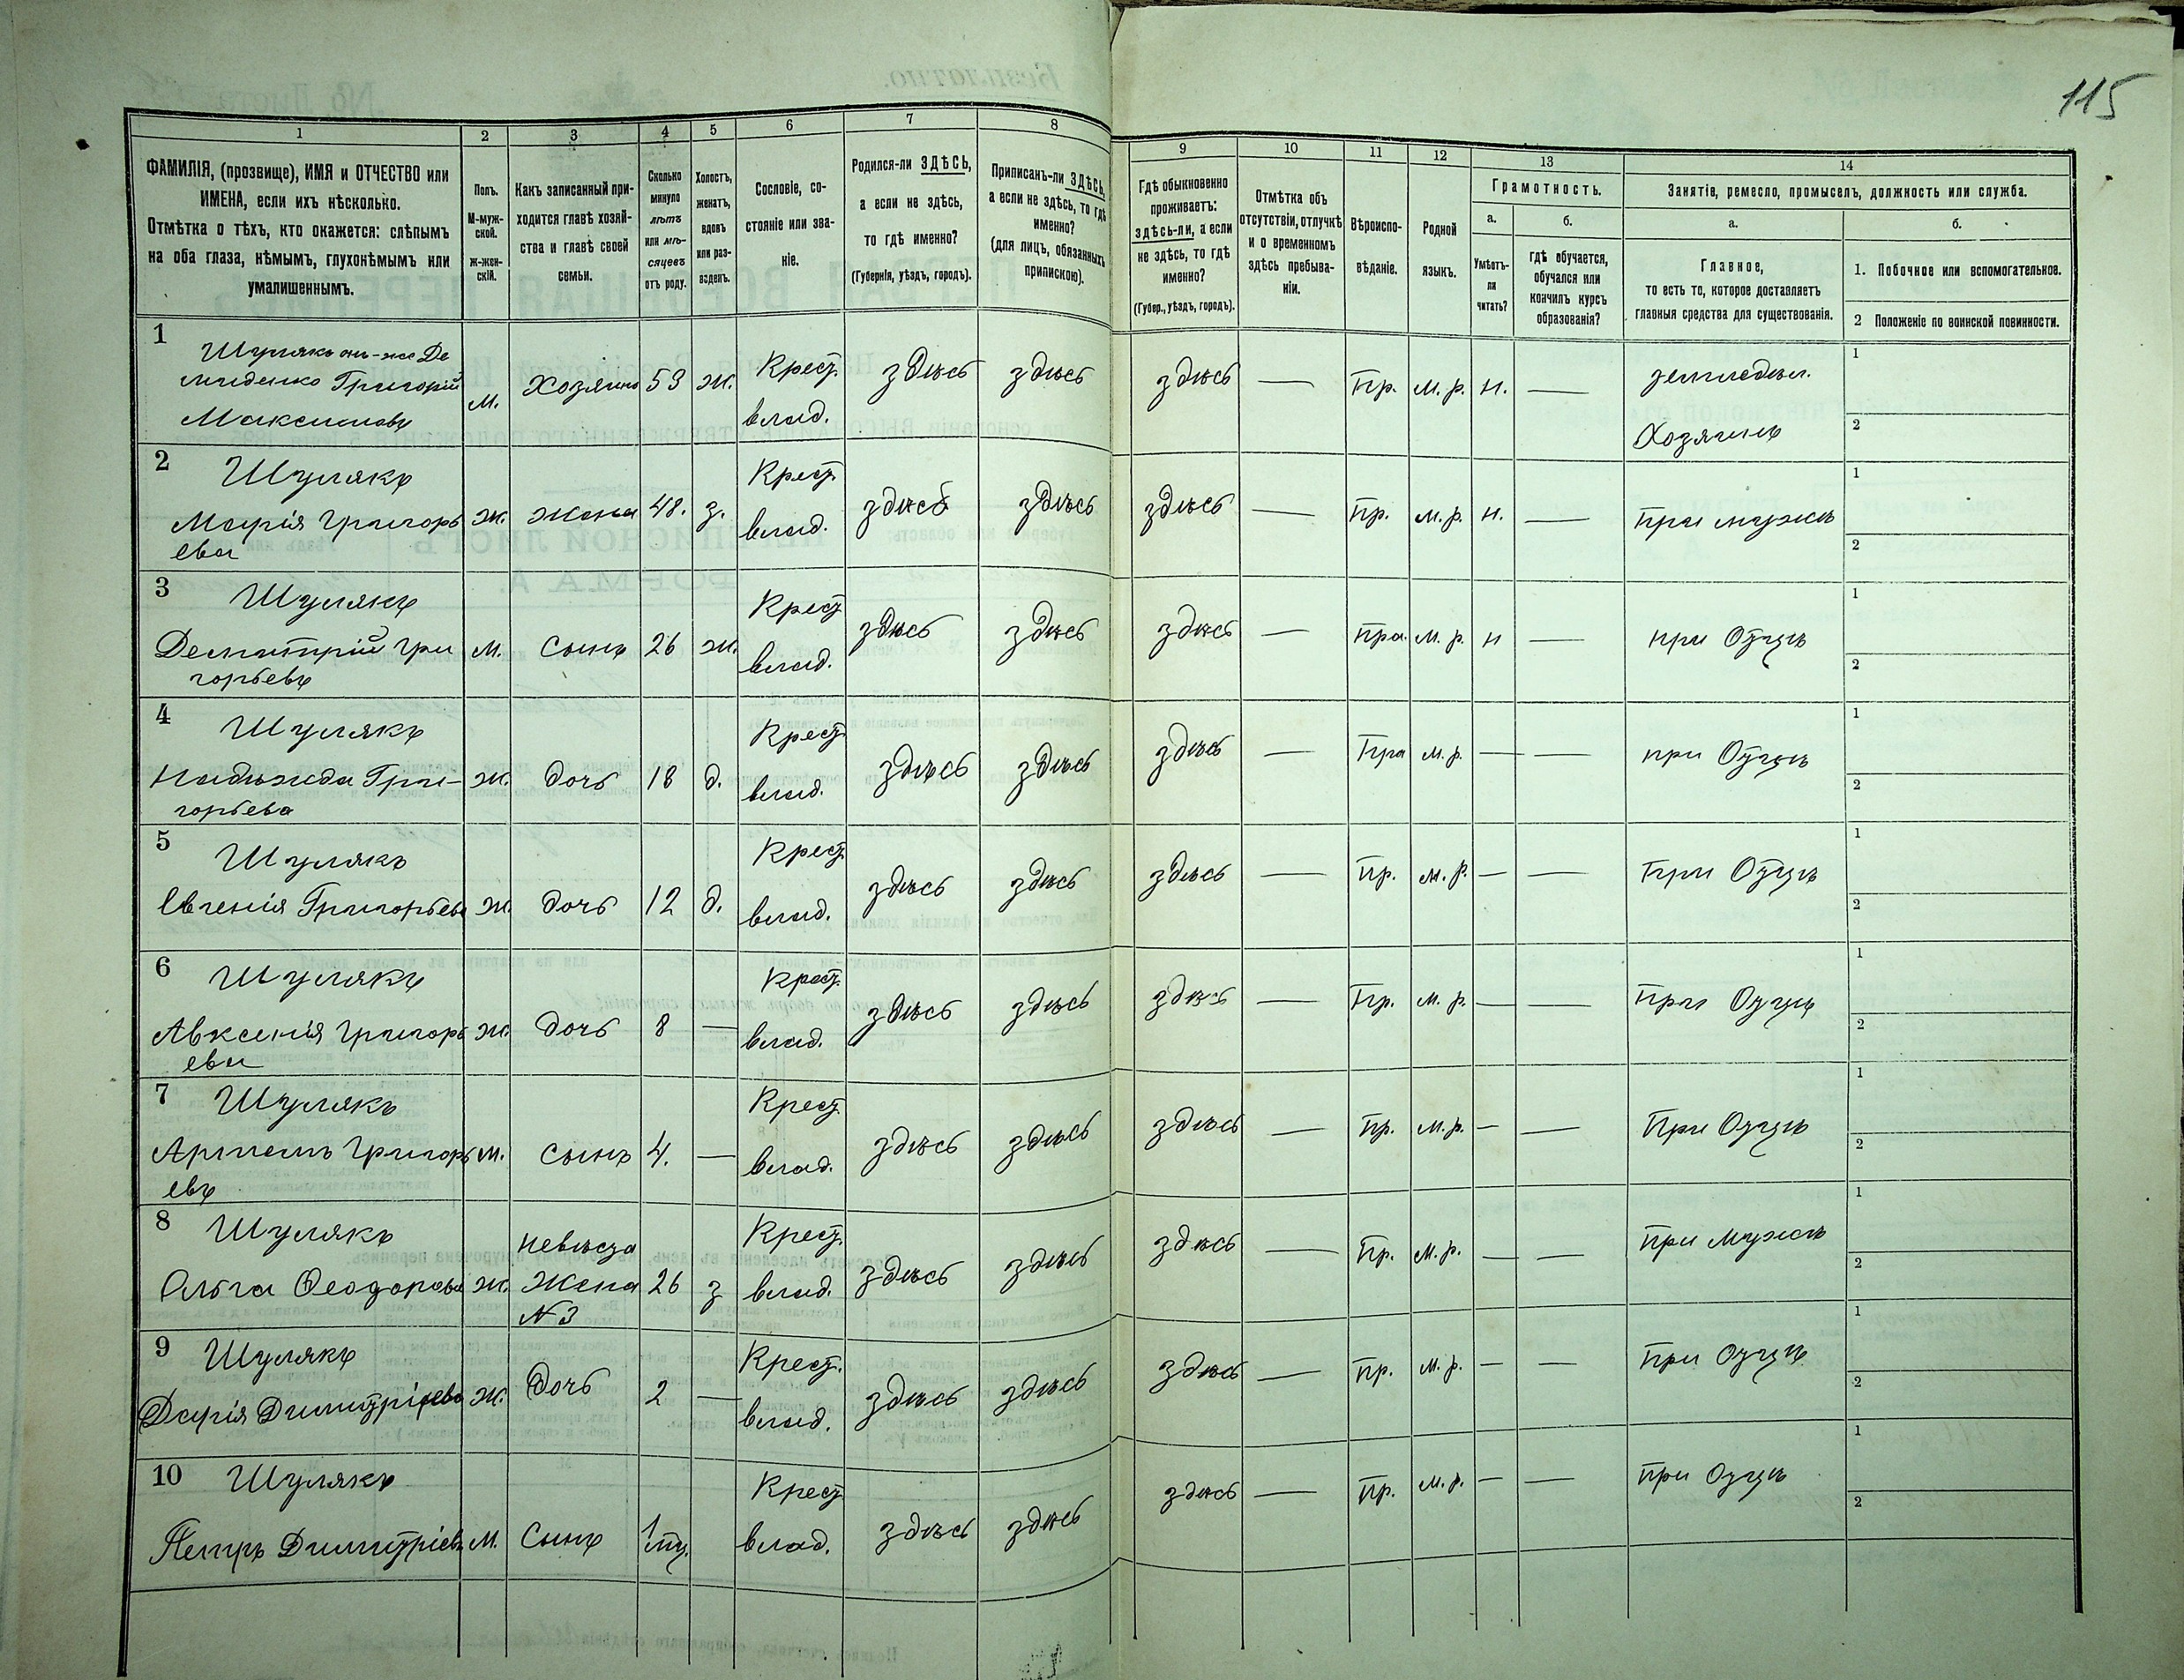 115
1 2 3 4 5 6 7 8 9 10 11 12 13 14
ФАМИЛІЯ, (прозвище), ИМЯ и ОТЧЕСТВО или
ИМЕНА, если ихъ нѣсколько.
Отмѣтка о тѣхъ, кто окажется: слѣпымъ
на оба глаза, нѣмымъ, глухонѣмымъ или
умалишеннымъ.
Полъ.
М-муж-
ской.
Ж-жен-
скій.
Какъ записанный при-
ходится главѣ хозяй-
ства и главѣ своей
семьи.
Сколько
минуло
лѣтъ
или мѣ-
сяцевъ
отъ роду.
Холостъ,
женатъ,
вдовъ
или раз-
веденъ.
Сословіе, со-
стояніе или зва-
ніе.
Родился-ли ЗДѢСЬ,
а если не здѣсь,
то гдѣ именно?
(Губернія, уѣздъ, городъ).
Приписанъ-ли ЗДѢСЬ,
а если не здѣсь, то гдѣ
именно?
(для лицъ, обязанныхъ
припискою).
Гдѣ обыкновенно
проживаетъ:
здѣсь-ли, а если
не здѣсь, то гдѣ
именно?
(Губер., уѣздъ, городъ).
Отмѣтка объ
отсутствіи, отлучкѣ
и о временномъ
здѣсь пребыва-
ніи.
Вѣроиспо-
вѣданіе.
Родной
языкъ.
Грамотность.
а.
Умѣетъ-
ли
читать?
б.
гдѣ обучается,
обучался или
кончилъ курсъ
образованія?
Занятіе, ремесло, промыселъ, должность или служба.
а.
Главное,
то есть то, которое доставляетъ
главныя средства для существованія.
б.
1. Побочное или вспомогательное.
2 Положеніе по воинской повинности.
1
Шулякъ онъ-же Де
миденко Григорій
Максимовъ
м. Хозяинъ 53 ж. Крест.
влад.
здѣсь здѣсь здѣсь — Пр. м.р. н. — земледѣл.
Хозяинъ
1
2
2 Шулякъ
Марія Григорь
ева
ж. жена 48. з. Крест.
влад.
здѣсь здѣсь здѣсь — Пр. м.р. н. — При мужѣ
1
2
3 Шулякъ
Демитрій Гри
горьевъ
м. сынъ 26 ж. Крест
влад.
здѣсь здѣсь здѣсь — Пра. м.р. н — при Отцѣ
1
2
4 Шулякъ
Надѣжда Гри-
горьева
ж. дочь 18 д. Крест
влад.
здѣсь здѣсь здѣсь — Пра м.р. — — при Отцѣ
1
2
5 Шулякъ
Евгенія Григорьева
ж. дочь 12 д. Крест.
влад.
здѣсь здѣсь здѣсь — Пр. м.р. — — При Отцѣ
1
2
6 Шулякъ
Авксенія Григорь
ева
ж. дочь 8 — Крест.
влад.
здѣсь здѣсь здѣсь — Пр. м.р. — — При Отцѣ
1
2
7 Шулякъ
Артемъ Григорь
евъ
м. сынъ 4. — Крест.
влад.
здѣсь здѣсь здѣсь — Пр. м.р. — — При Отцѣ
1
2
8 Шулякъ
Ольга Феодорова
ж. невѣста
Жена
N 3
26 з Крест.
влад.
здѣсь здѣсь здѣсь — Пр. м.р. — — При мужѣ
1
2
9 Шулякъ
Дарія Димитріева
ж. дочь 2 — Крест.
влад.
здѣсь здѣсь здѣсь — Пр. м.р. — — При Отцѣ
1
2
10 Шулякъ
Петръ Димитріевъ
м. Сынъ 1
Крест
влад.
здѣсь здѣсь здѣсь — Пр. м.р. — — При Отцѣ
1
2